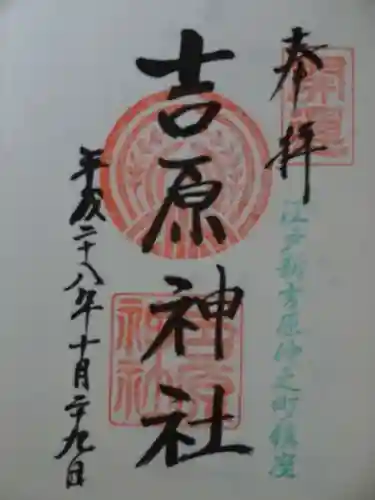 奉拝
江戸新吉原仲之町鎮座
吉原神社
平成二十八年十月二十九日